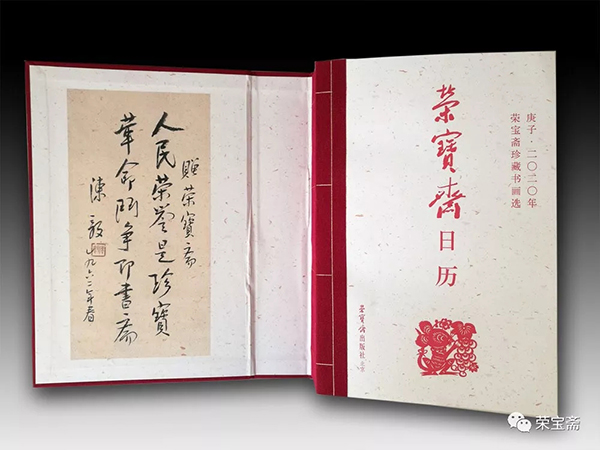 贈荣寶斋
人民荣誉是珍寶
革命鬥争即書斋
陳毅
一九六二年春
庚子·二〇二〇年
荣宝斋珍藏书画选
榮寶齋日历
荣宝斋出版社
荣宝斋